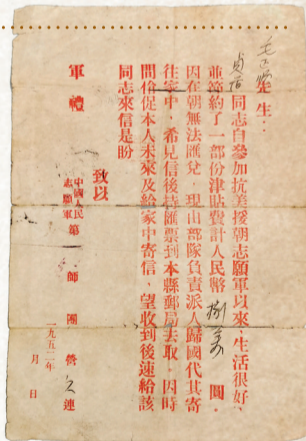 先生：
同志自參加抗美援朝志願軍以來，生活很好，
並節約了一部份津貼費計人民幣捌萬圓。
因在朝無法匯兌，現由部隊負責派人歸國代其寄
往家中，希見信後持匯票到本縣郵局去取。因時
間倉促本人未來及給家中寄信，望收到後速給該
同志來信是盼
致以
軍禮
中國人民志願軍第 師 團 營 連
一九五二年 月 日